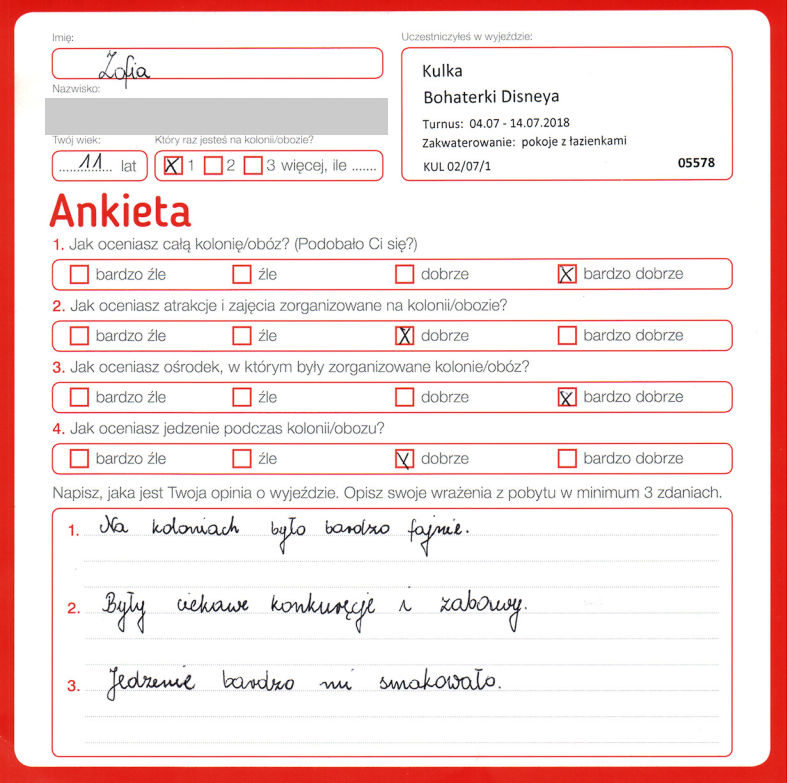 Imię:
Zofia
Nazwisko:
Twój wiek:
11 lat
Który raz jesteś na kolonii/obozie?
1 2 3 więcej, ile .......
Uczestniczyłeś w wyjeździe:
Kulka
Bohaterki Disneya
Turnus: 04.07 - 14.07.2018
Zakwaterowanie: pokoje z łazienkami
KUL 02/07/1 05578
Ankieta
1. Jak oceniasz całą kolonię/obóz? (Podobało Ci się?)
bardzo źle źle dobrze bardzo dobrze
2. Jak oceniasz atrakcje i zajęcia zorganizowane na kolonii/obozie?
bardzo źle źle dobrze bardzo dobrze
3. Jak oceniasz ośrodek, w którym były zorganizowane kolonie/obóz?
bardzo źle źle dobrze bardzo dobrze
4. Jak oceniasz jedzenie podczas kolonii/obozu?
bardzo źle źle dobrze bardzo dobrze
Napisz, jaka jest Twoja opinia o wyjeździe. Opisz swoje wrażenia z pobytu w minimum 3 zdaniach.
1. Na koloniach było bardzo fajnie.
2. Były ciekawe konkuręcje i zabawy.
3. Jedzenie bardzo mi smakowało.